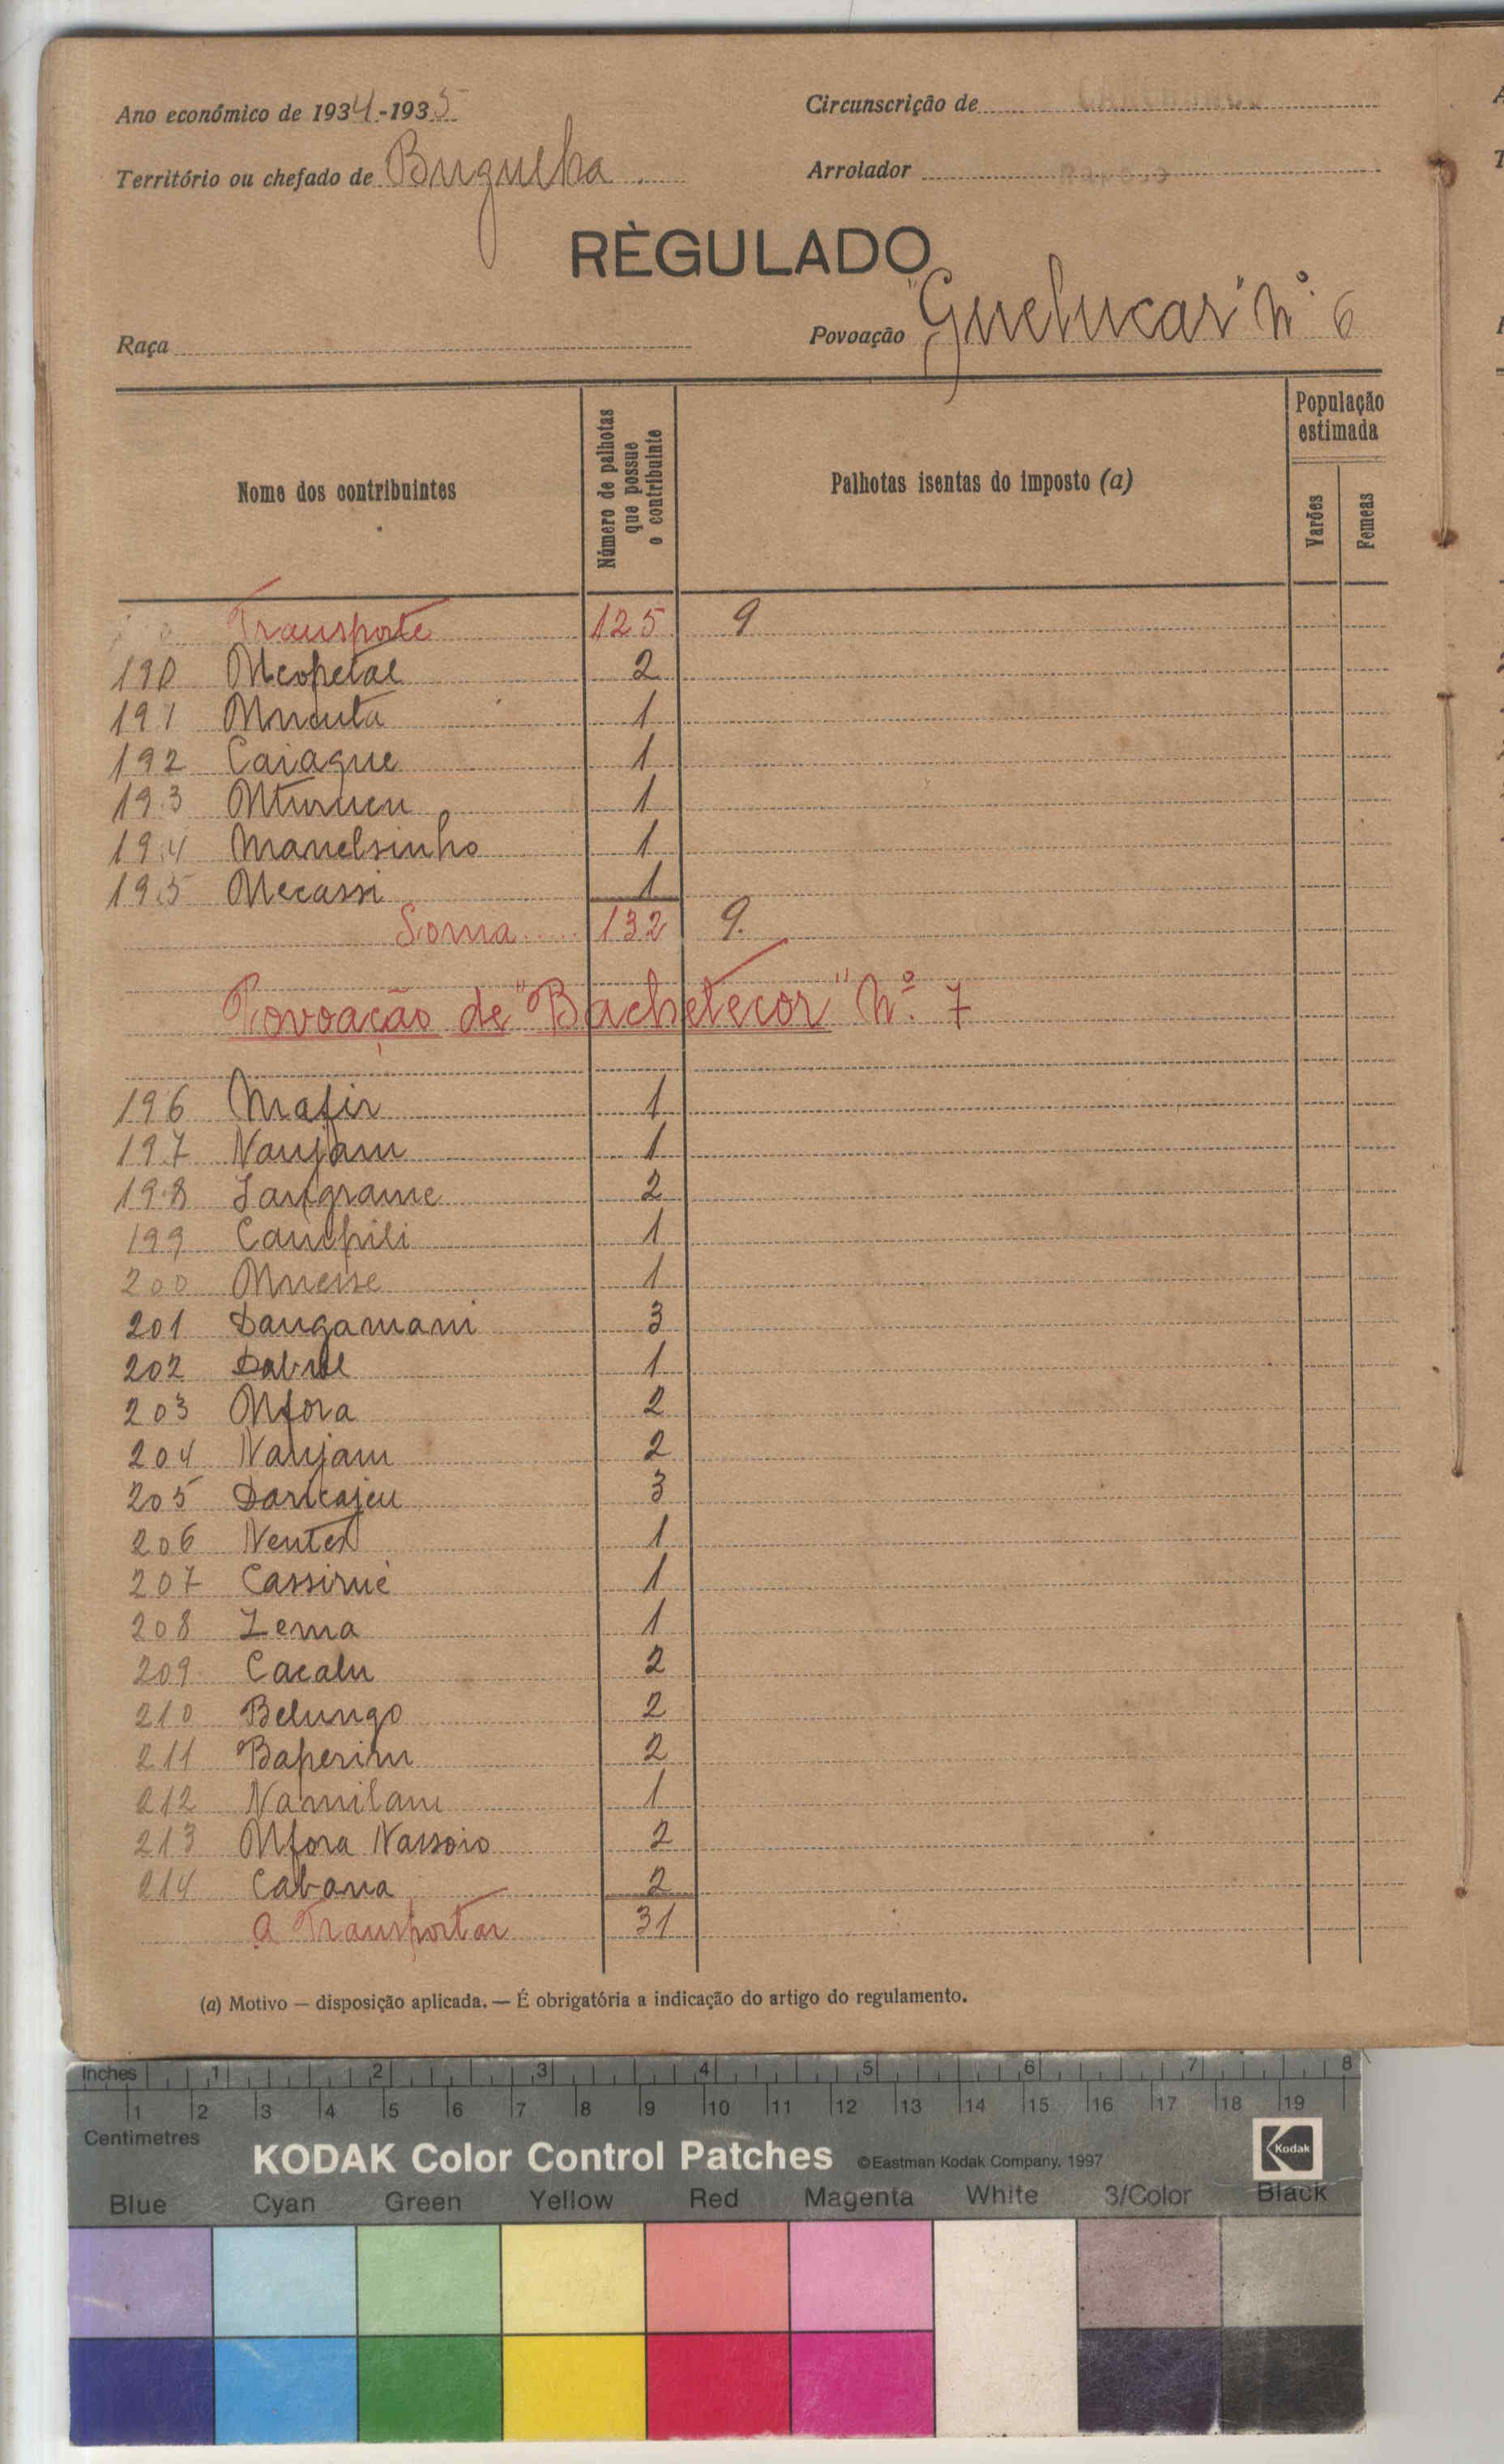 Ano económico de 1934-1935
Circunscrição de
Território ou chefado de Buguelha
Arrolador
RÈGULADO
Raça
Povoação "Guelucar" Nº 6
Nome dos contribuintes
Número de palhotas que possue o contribuinte
Palhotas isentas do imposto (a)
População estimada
Varões
Femeas
Transporte 125 9
190 Mcopetae 2
191 Mnauta 1
192 Caiague 1
193 Mturucu 1
194 Manelsinho 1
195 Mecassi 1
Soma..... 132 9.
Povoação de "Bachetecor" Nº 7
196 Mafir 1
197 Naujam 1
198 Sangrame 2
199 Campili 1
200 Mnesse 1
201 Dangamani 3
202 Dabael 1
203 Mfora 2
204 Naujam 2
205 Daricajeu 3
206 Nentex 1
207 Cassirué 1
208 Zema 1
209 Cacalu 2
210 Belungo 2
211 Baperim 2
212 Namilam 1
213 Mfora Nassoio 2
214 Cabana 2
A Transportar 31
(a) Motivo — disposição aplicada. — É obrigatória a indicação do artigo do regulamento.
Inches 1 2 3 4 5 6 7 8
1 2 3 4 5 6 7 8 9 10 11 12 13 14 15 16 17 18 19
Centimetres
KODAK Color Control Patches ©Eastman Kodak Company, 1997 Kodak
Blue Cyan Green Yellow Red Magenta White 3/Color Black